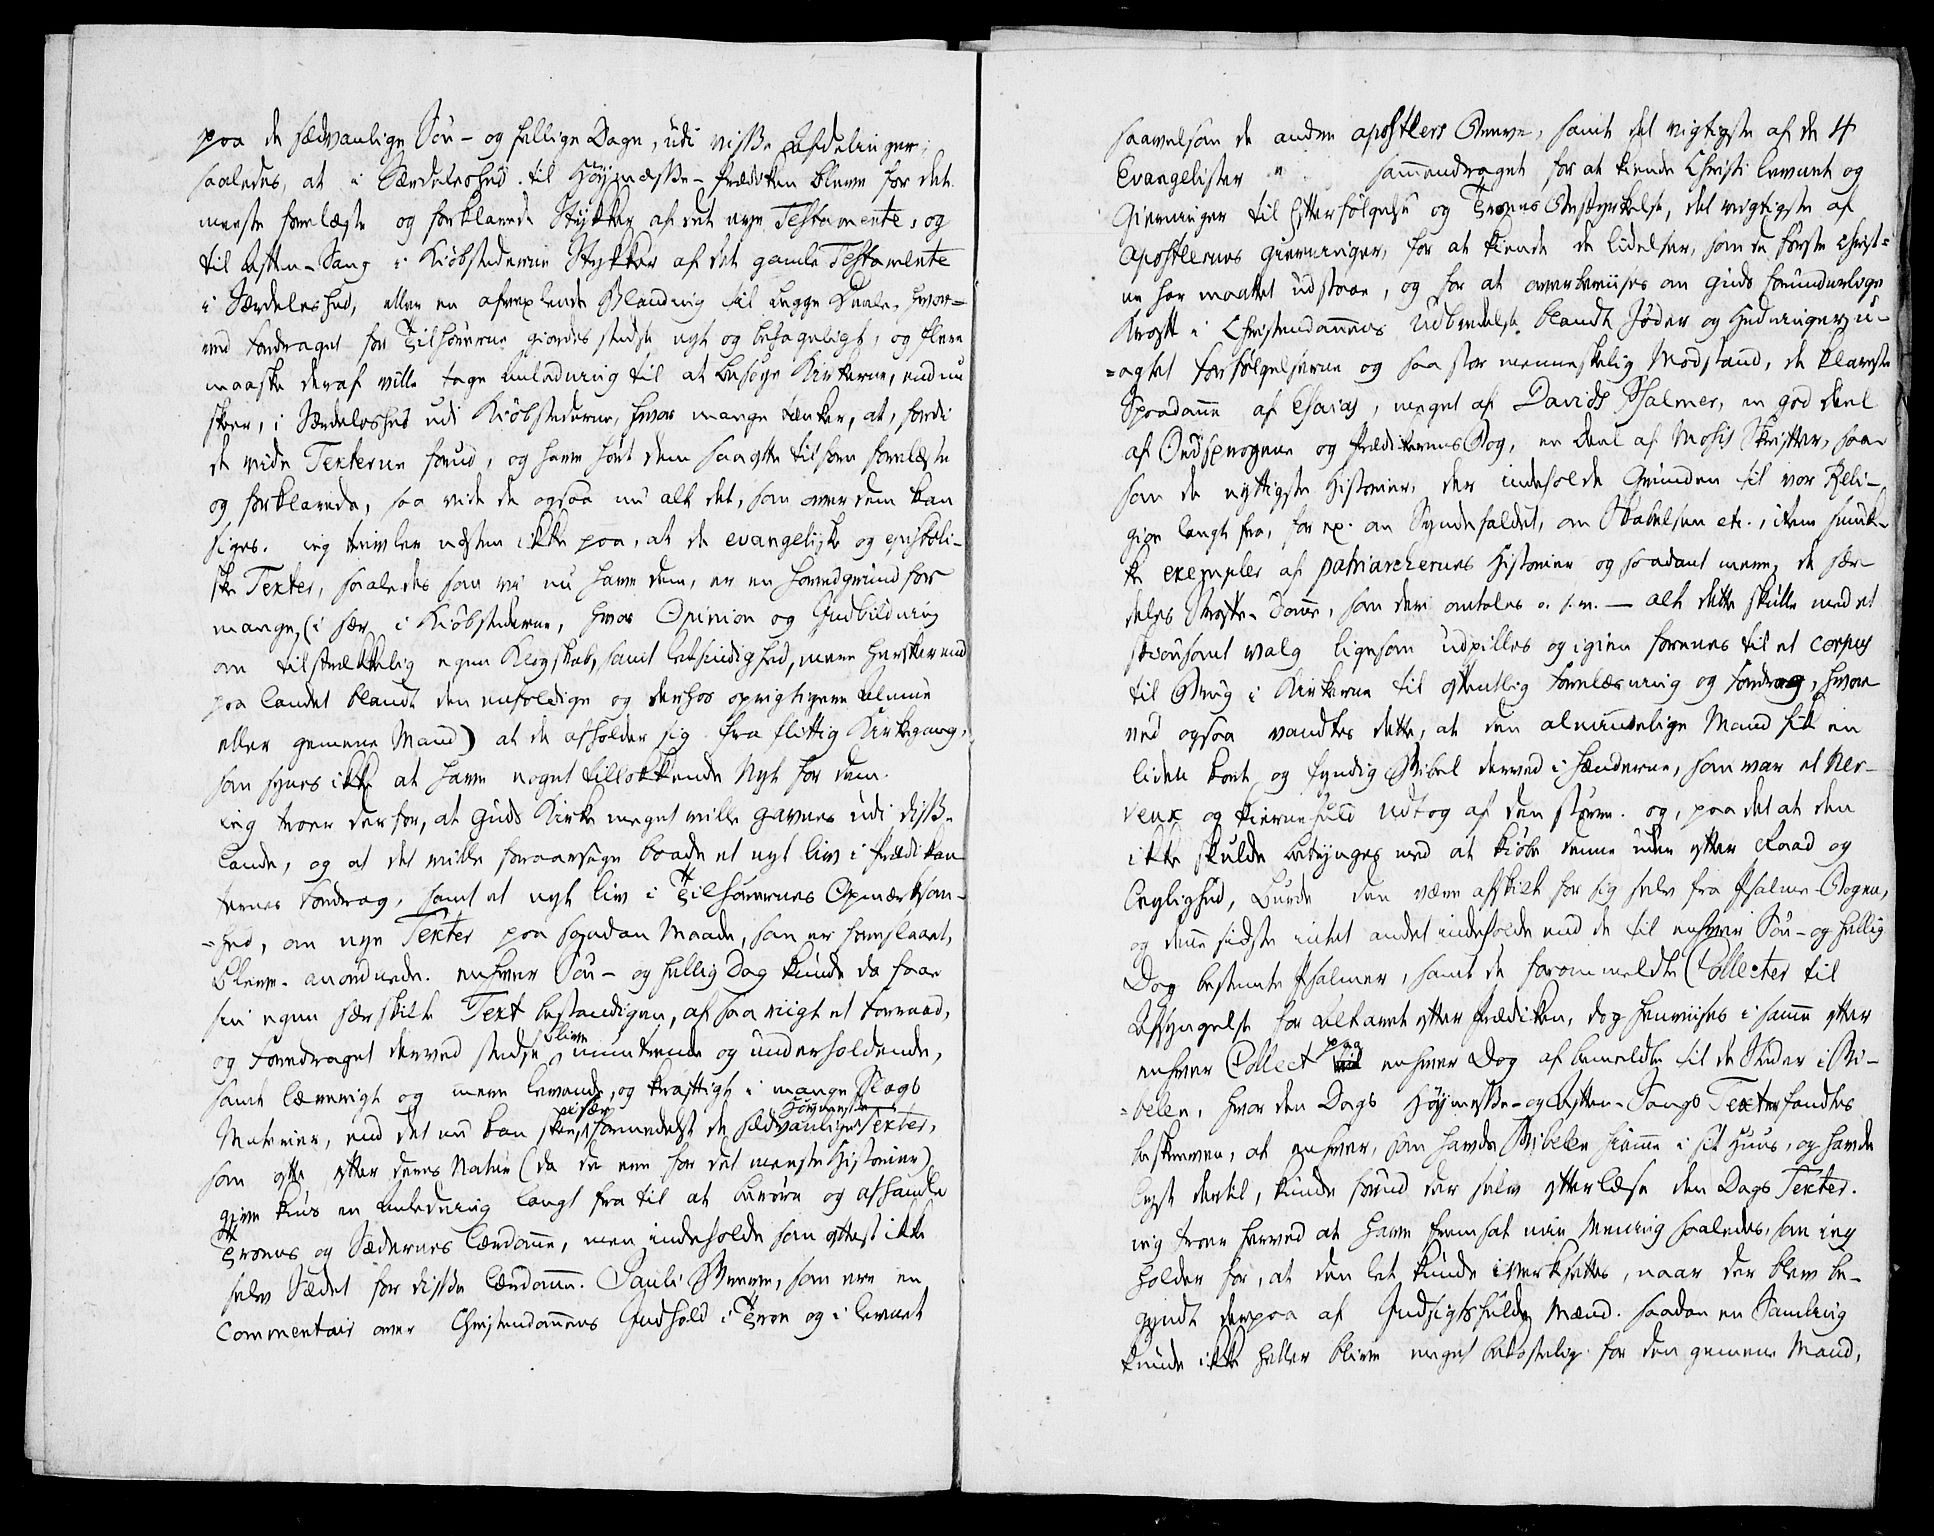 paa de sædvanlige Søn- og hellige Dage, udi visse Afdelinger;
saaledes, at i Særdeleshed til Høymesse-Prædiken bleve for det
meeste forelagte og forklarede Stykker af det nye Testamente, og
til Aften-Sang i Kiøbstæderne Stykker af det gamle Testamente
i Særdeleshed, eller en afvexlende Blanding til begge Deele, hvor-
ved Fordraget for Tilhørerne giordes stedse nyt og behageligt, og flere
maaskee deraf ville tage Anledning til at besøge Kirkerne, end nu
skeer, i Særdeleshed udi Kiøbstæderne, hvor mange tænker, at, fordi
de vide Texterne forud, og have hørt dem saa ofte tilforn forelæste
og forklarede, saa vide de ogsaa nu alt det, som over dem kan
siges. ieg tvivler næsten ikke paa, at de evangeliske og epistoli-
ske Texter, saaledes som vi nu have dem, er en hovedgrund for
mange, (i sær i Kiøbstæderne, hvor Opinion og Indbildning
om tilstrækkelig egen Klogskab, samt letsindighed, mere hersker end
paa landet blandt den eenfoldige og derhos oprigtigere Almue
eller gemene Mand) at de afholder sig fra flittig Kirkegang,
som synes ikke at have noget tillokkende Nyt for dem.
ieg troer derfor, at Guds Kirke meget ville gavnes udi disse
lande, og at det ville foraarsage baade et nyt liv i Prædikan-
ternes Fordrag, samt et nyt liv i Tilhørernes Opmærksom-
=hed, om nye Texter paa saadan Maade, som er foreslaaet,
bleve anordnede. enhver Søn- og hellig Dag kunde da faae
sin egen særskilte Text bestandigen, af saa riigt et Forraad,
og Foredraget derved stedse blive muntrende og underholdende,
samt lærerigt og mere levende, og kraftigt i mange Slags
Materier, end det nu kan skee, i sær formedelst de sædvanlige Høymesse Texter,
som ofte efter deres Natur (da de ere for det meeste Historier)
give kuns en Anledning langt fra til at berøre og afhandle
Troens og Sædernes lærdomme, men indeholde som oftest ikke
selv Sædet for disse lærdomme. Pauli Breve, som ere en
Commentair over Christendommens Indhold i Troe og i levnet
saavelsom de andre apostlers Breve, samt det vigtigste af de 4
Evangelister " sammendraget for at kiende Christi levnet og
Gierninger til Efterfølgelse og Troens Bestyrkelse, det vigtigste af
Apostlernes gierninger, for at kiende de lidelser, som de første Christ=
ne har maattet udstaae, og for at overbeviises om Guds forunderlige
Kraft i Christendommens Udbredelse blandt Jøder og Hedninger, u-
=agtet Forfølgelserne og saa stor menneskelig Modstand, de klareste
Spaadomme af Esaias, meget af Davids Psalmer, en god deel
af Ordsprogene og Prædikerens Bog, en Deel af Mosis Skrifter, saa-
som de nyttigste Historier, der indeholde Grunden til vor Reli-
gion langt fra, for ex. om Syndefaldet, om Skabelsen etc., item smuk-
ke exempler af patriarchernes Historier og saadant mere, de sær-
deles Straffe-Domme, som deri omtales o. s. v. — alt dette skulle med et
skiønsomt valg ligesom udpilles og igien forenes til et corpus
til Brug i Kirkerne til offentlig Forelæsning og Fordrag, hvor-
ved ogsaa vandtes dette, at den almindelige Mand fik en
liden kort og fyndig Bibel derved i hænderne, som var et ner-
veux og kiernefuld Udtog af den større. og, paa det at den
ikke skulde betynges med at kiøbe denne uden efter Raad og
leylighed, burde den være afskilt for sig selv fra Psalme-Bogen,
og denne sidste intet andet indeholde end de til enhver Søn- og hellig
Dag bestemte Psalmer, samt de forommeldte Collecter til
Afsyngelse for Alteret efter Prædiken, dog henviises i samme efter
enhver Collect paa enhver Dag af bemeldte til de Steder i Bi-
=belen, hvor den Dags Høymesse- og Aften-Sangs Texter fandtes
beskreven, at enhver, som havde Bibelen hiemme i sit Huus, og havde
lyst dertil, kunde forud der selv efterlæse den Dags Texter.
ieg troer herved at have fremsat min Mening saaledes, som ieg
holder for, at den let kunde iværksættes, naar der blev be-
gyndt derpaa af Indsigtsfulde Mænd. saadan en Samling
kunde ikke heller blive meget bekostelig for den gemene Mand,